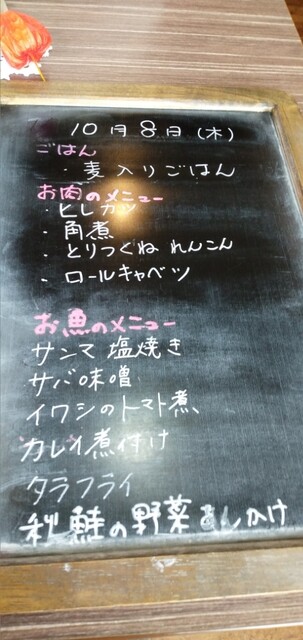 10月8日(木)
ごはん
・麦入りごはん
お肉のメニュー
・ヒレカツ
・角煮
・とりつくね れんこん
・ロールキャベツ
お魚のメニュー
サンマ 塩焼き
サバ味噌
イワシのトマト煮
カレイ煮付け
タラフライ
秋鮭の野菜あんかけ